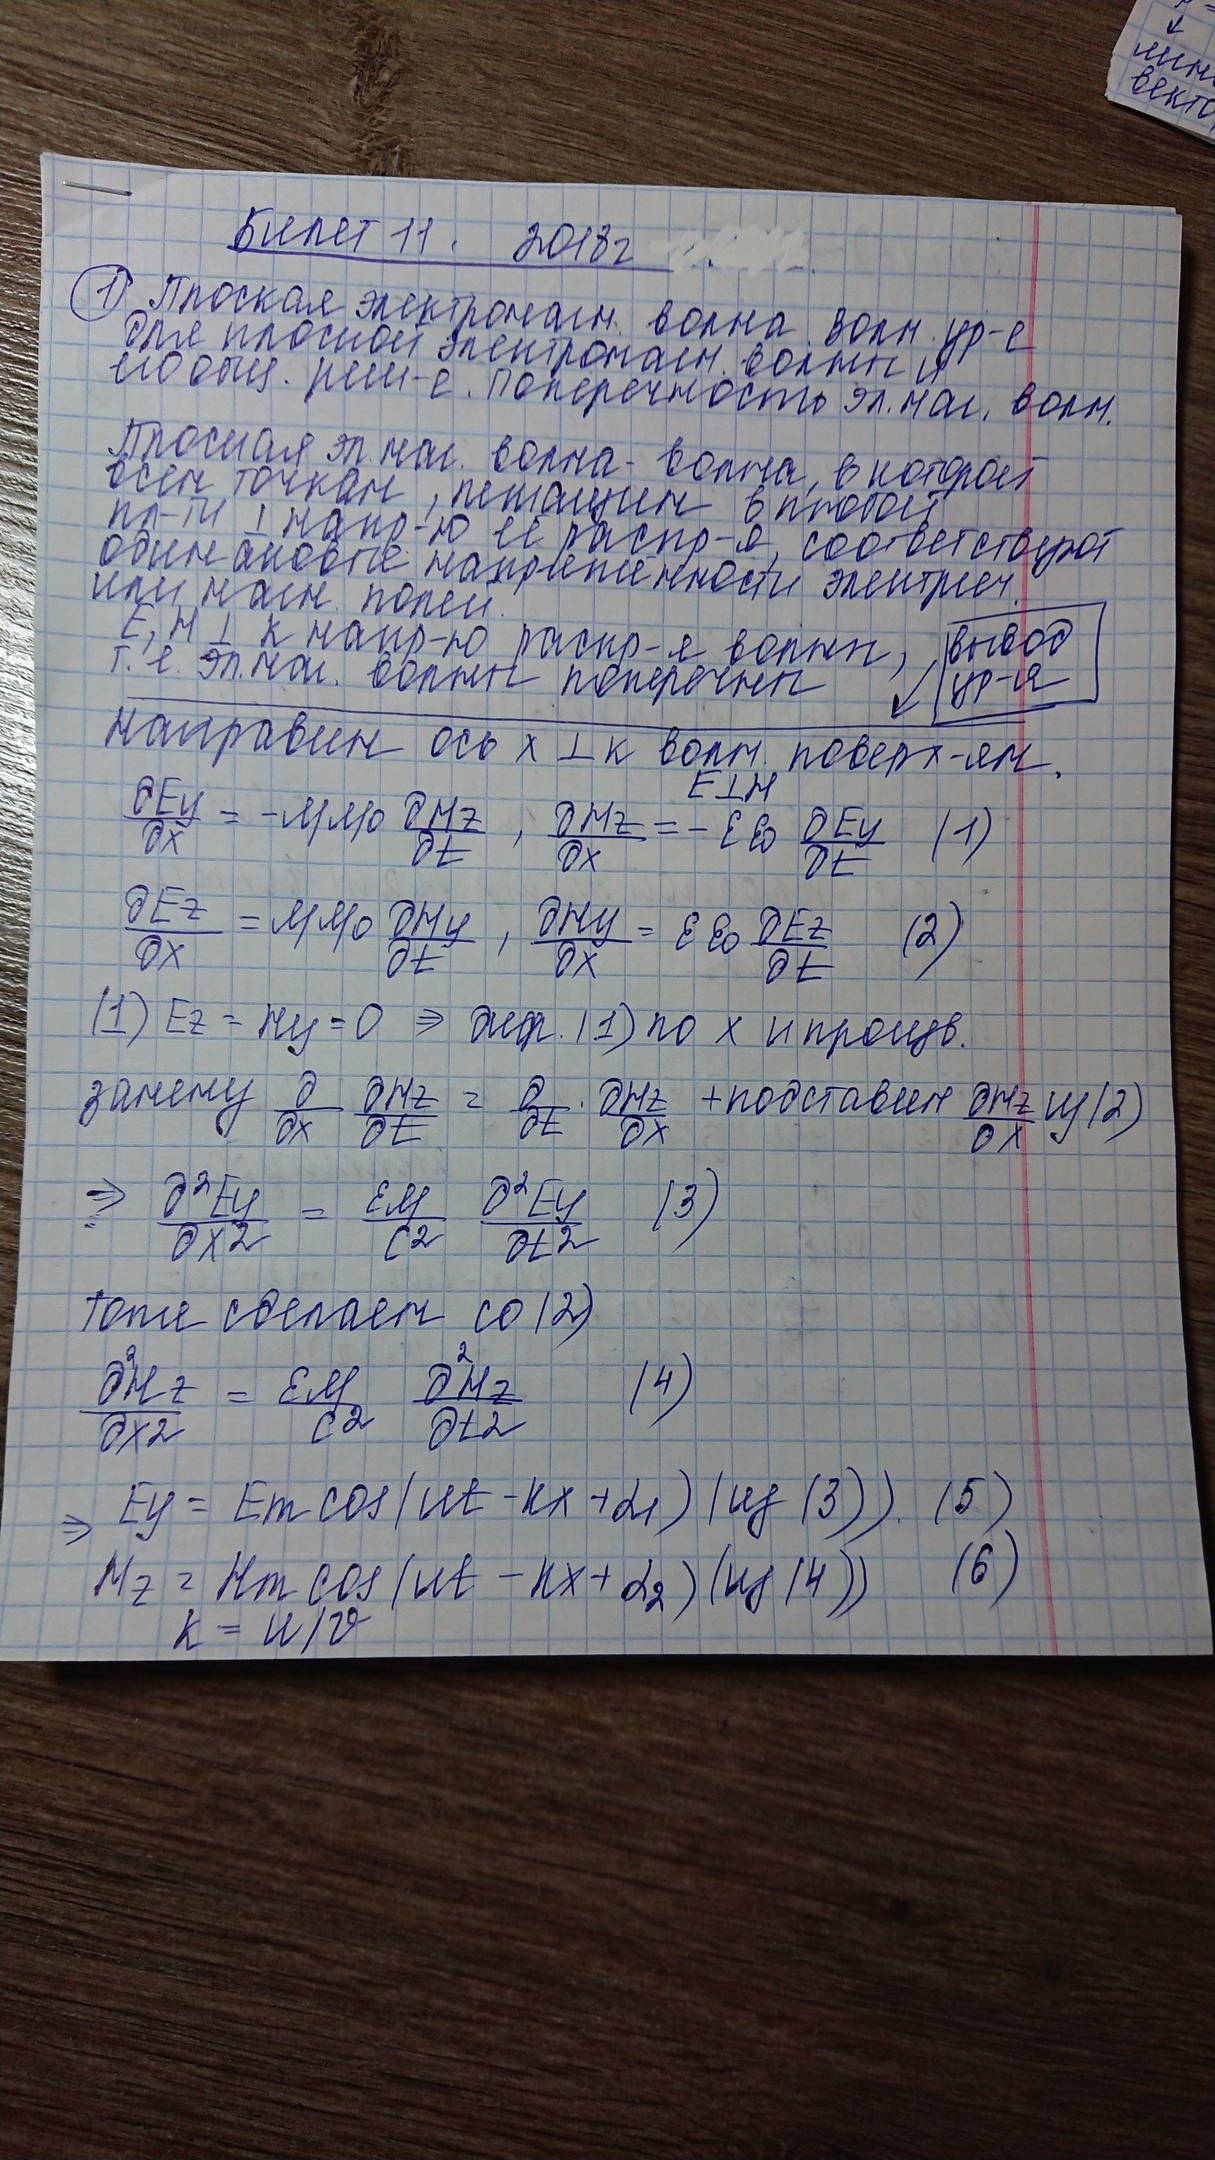 Билет 11. 2018г
1) Плоская электромагн. волна. Волн. ур-е
для плоской электромагн. волны и
его общ. реш-е. Поперечность эл.маг. волн.
Плоская эл.маг. волна - волна, в которой
всем точкам, лежащим в любой
пл-ти ⊥ напр-ю её распр-я, соответствуют
одинаковые напряженности электрич.
или магн. полей.
E, H ⊥ к напр-ю распр-я волны,
т.е. эл.маг. волны поперечны
вывод
ур-я
Направим ось x ⊥ к волн. поверх-ям.
E⊥H
∂Ey/∂x = -μμ0 ∂Hz/∂t , ∂Hz/∂x = -εε0 ∂Ey/∂t (1)
∂Ez/∂x = μμ0 ∂Hy/∂t , ∂Hy/∂x = εε0 ∂Ez/∂t (2)
(1) Ez = Hy = 0 ⇒ диф. (1) по x и произв.
замену ∂/∂x ∂Hz/∂t = ∂/∂t · ∂Hz/∂x + подставим ∂Hz/∂x из (2)
⇒ ∂²Ey/∂x2 = εμ/c2 ∂²Ey/∂t2 (3)
Тоже сделаем со (2)
∂²Hz/∂x2 = εμ/c2 ∂²Hz/∂t2 (4)
⇒ Ey = Em cos(ωt - kx + α1) (из (3)). (5)
Hz = Hm cos(ωt - kx + α2) (из (4)) (6)
k = ω/v
↓
векто